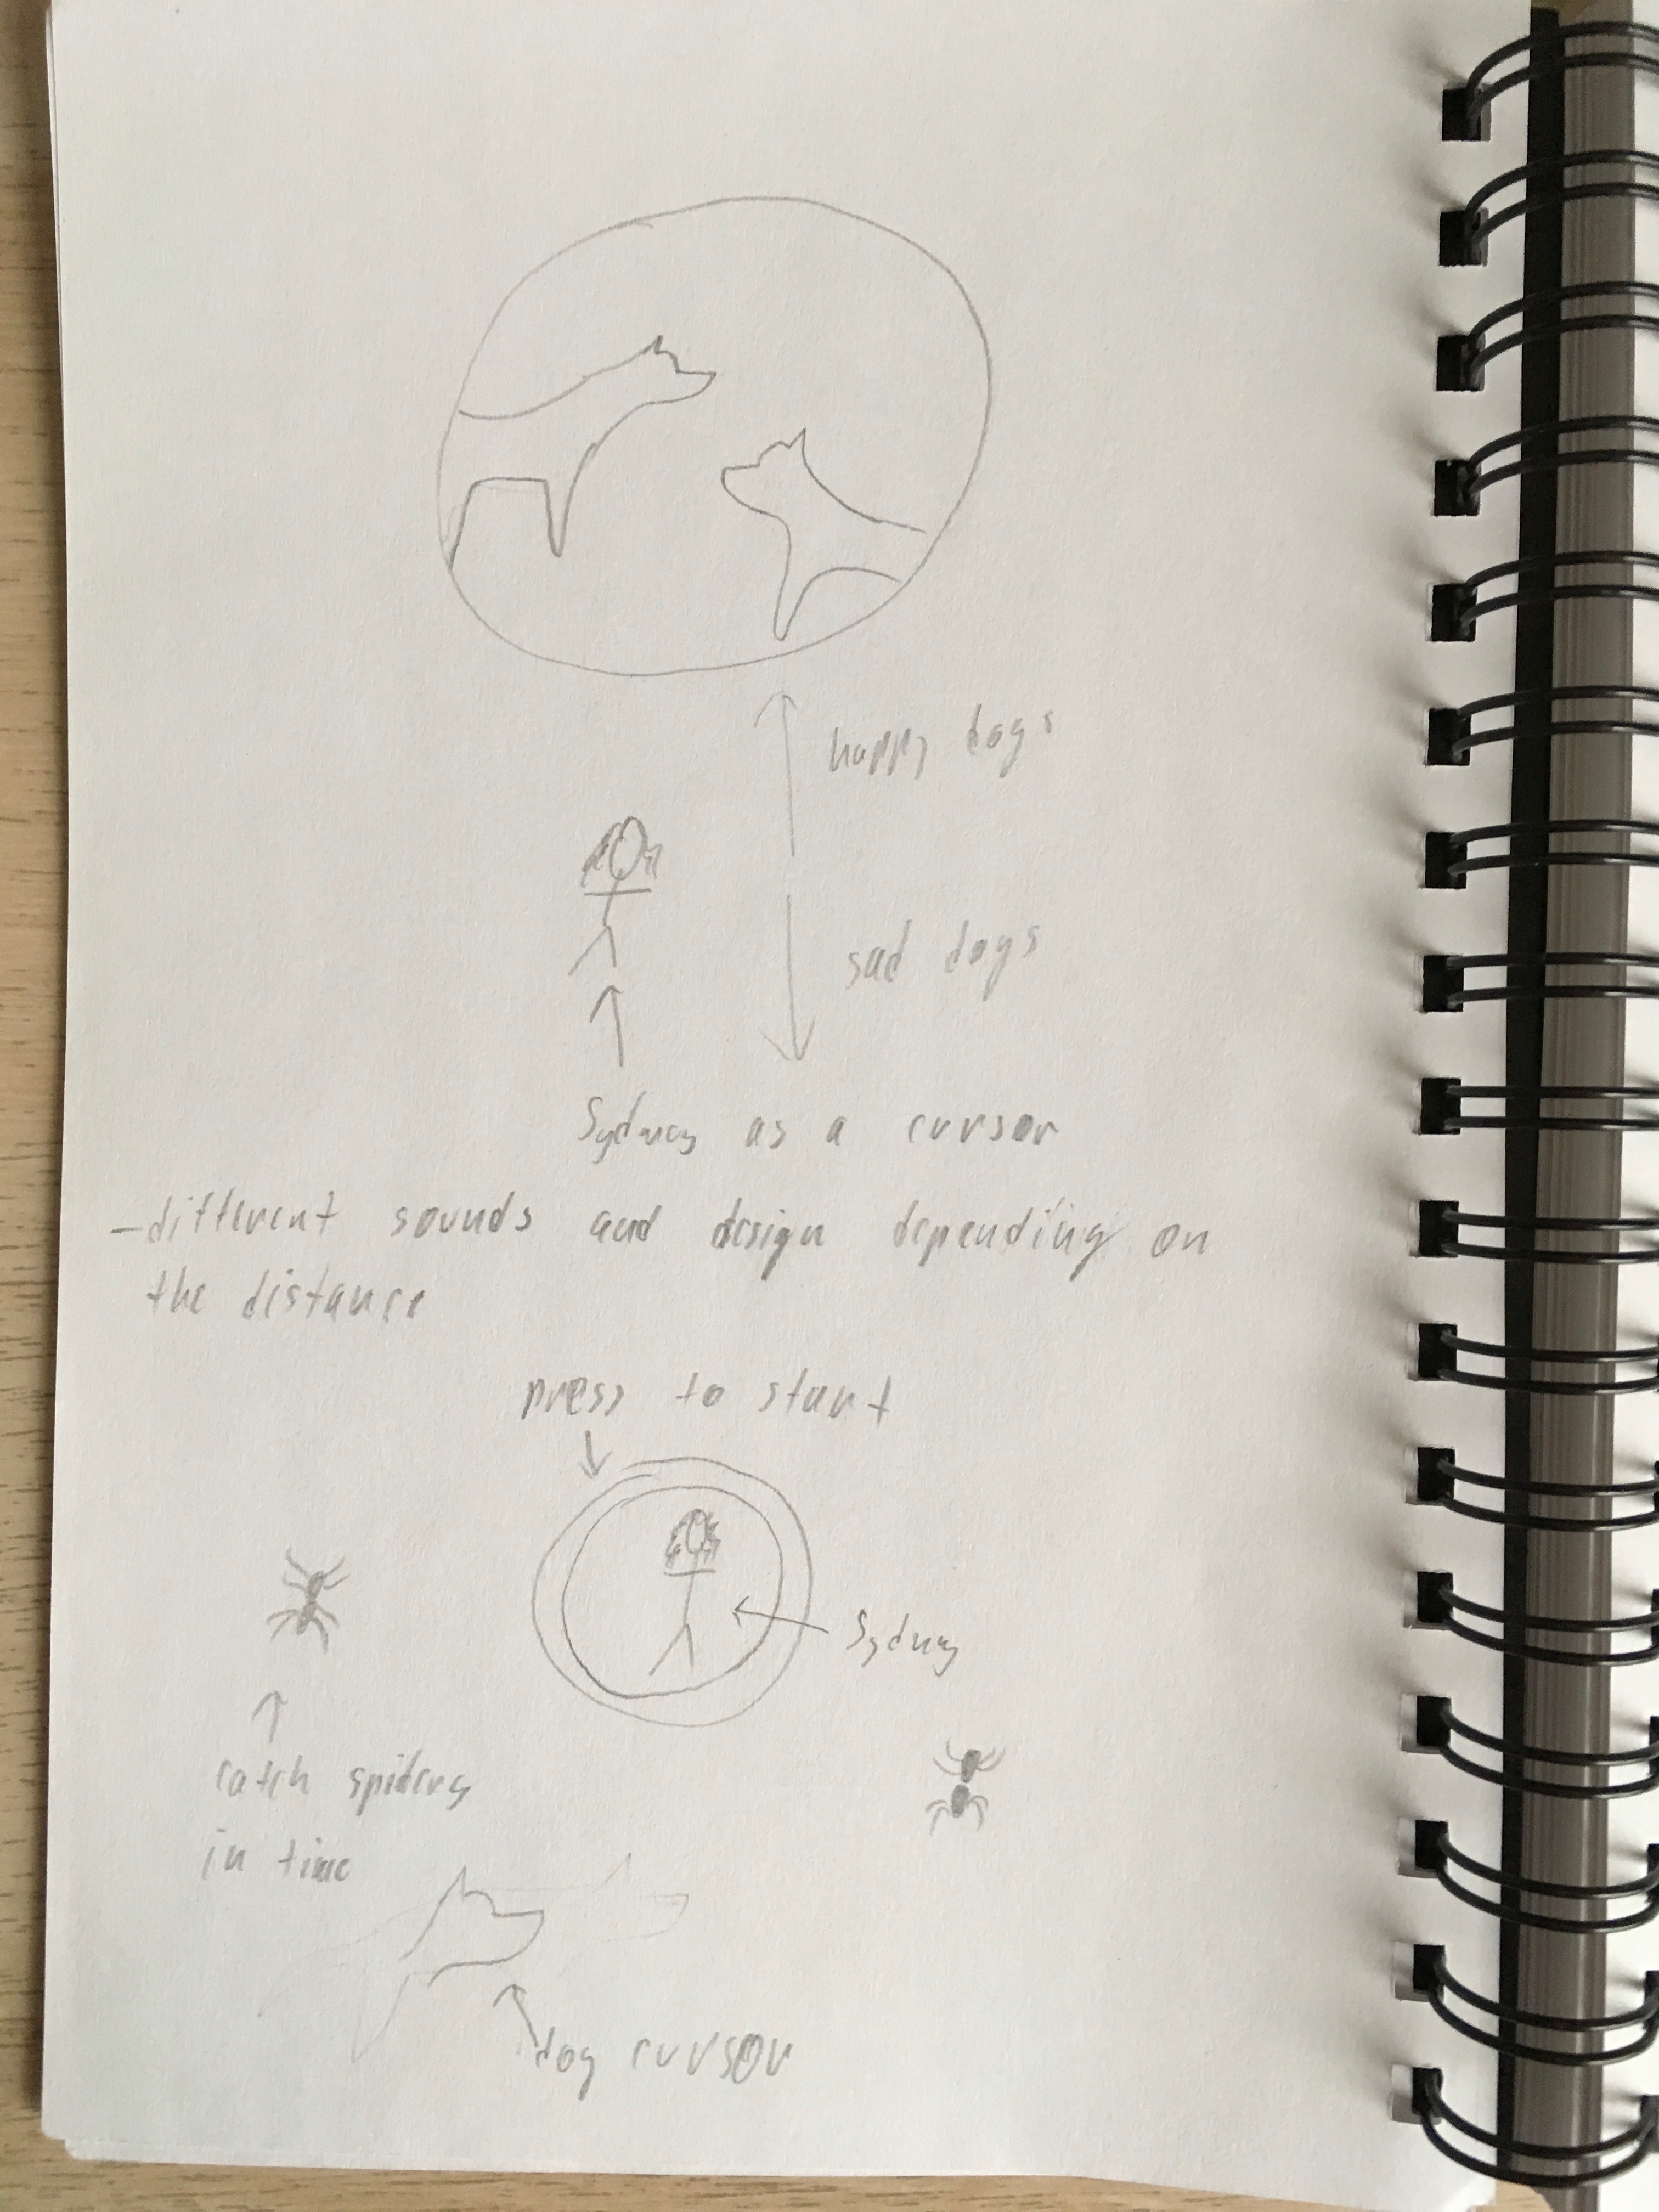 happy dogs
sad dogs
Sydney as a cursor
-different sounds and design depending on
the distance
press to start
Sydney
catch spiders
in time
dog cursor